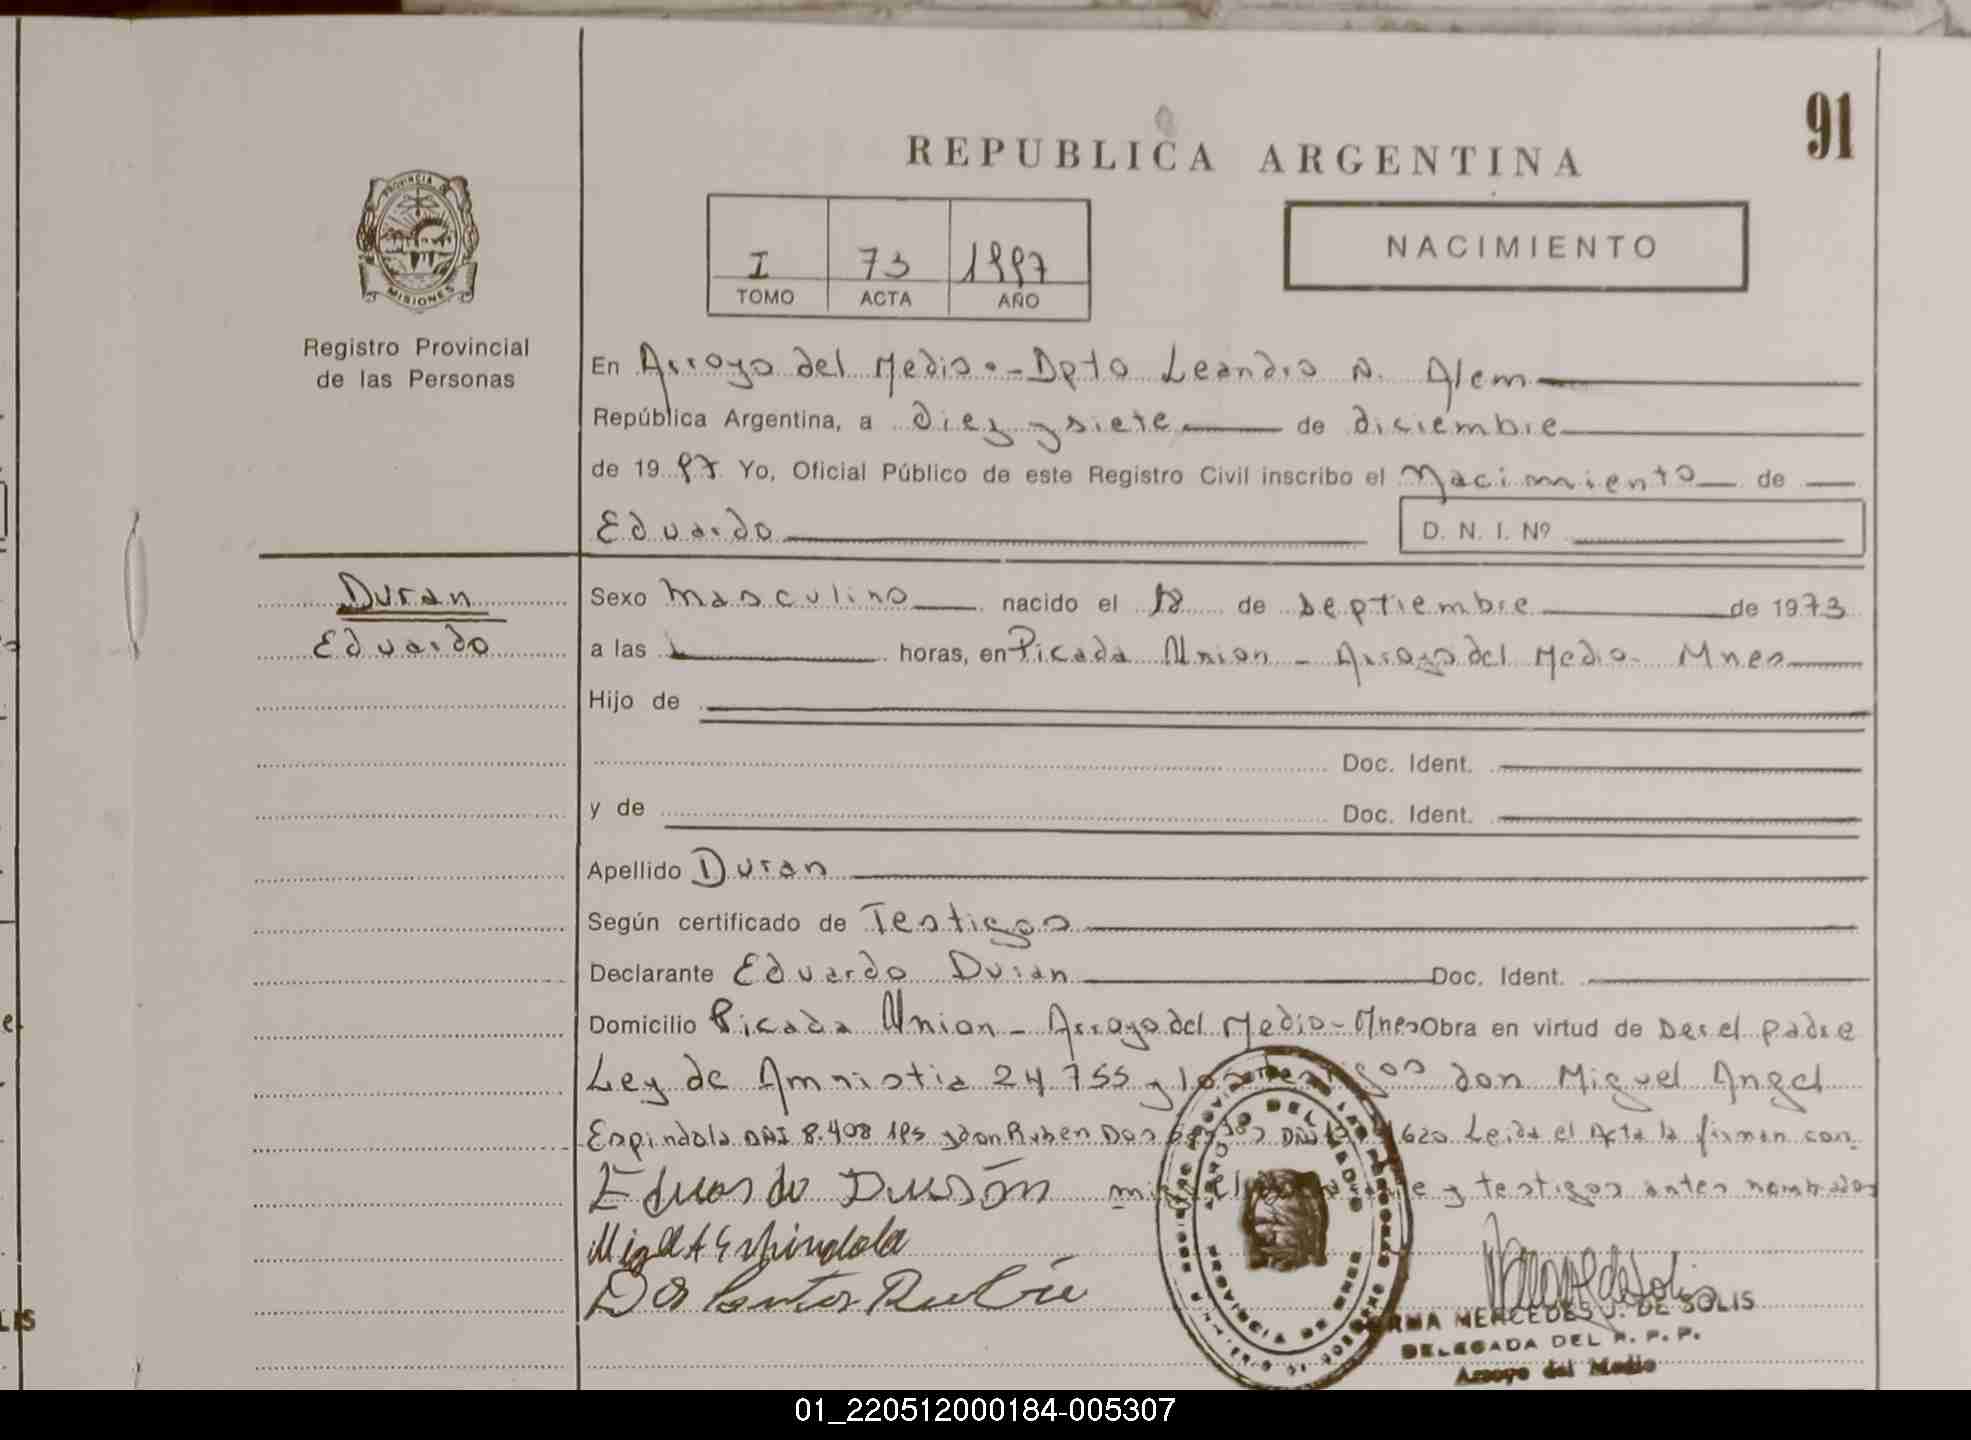 91
REPUBLICA ARGENTINA
PROVINCIA DE
MISIONES
Registro Provincial
de las Personas
I 73 1997
TOMO ACTA AÑO
NACIMIENTO
En Arroyo del Medio.- Dpto Leandro N. Alem
República Argentina, a diez y siete de diciembre
de 1997 Yo, Oficial Público de este Registro Civil inscribo el Nacimiento de
Eduardo D. N. I. Nº
Duran
Eduardo
Sexo Masculino nacido el 18 de Septiembre de 1973
a las horas, en Picada Union - Arroyo del Medio - Mnes
Hijo de
Doc. Ident.
y de Doc. Ident.
Apellido Duran
Según certificado de Testigos
Declarante Eduardo Duran Doc. Ident.
Domicilio Picada Union - Arroyo del Medio - Mnes Obra en virtud de Ser el padre
Ley de Amnistia 24755 y los testigos don Miguel Angel
Espindola DNI 8.408.195 y don Ruben Dos 620 Leida el Acta la firman con-
Eduardo Durán e y testigos antes nombrados
Miguel A Espindola
Dos Santos Rubén
MERCEDES J. DE SOLIS
DELEGADA DEL R. P. P.
Arroyo del Medio
01_220512000184-005307